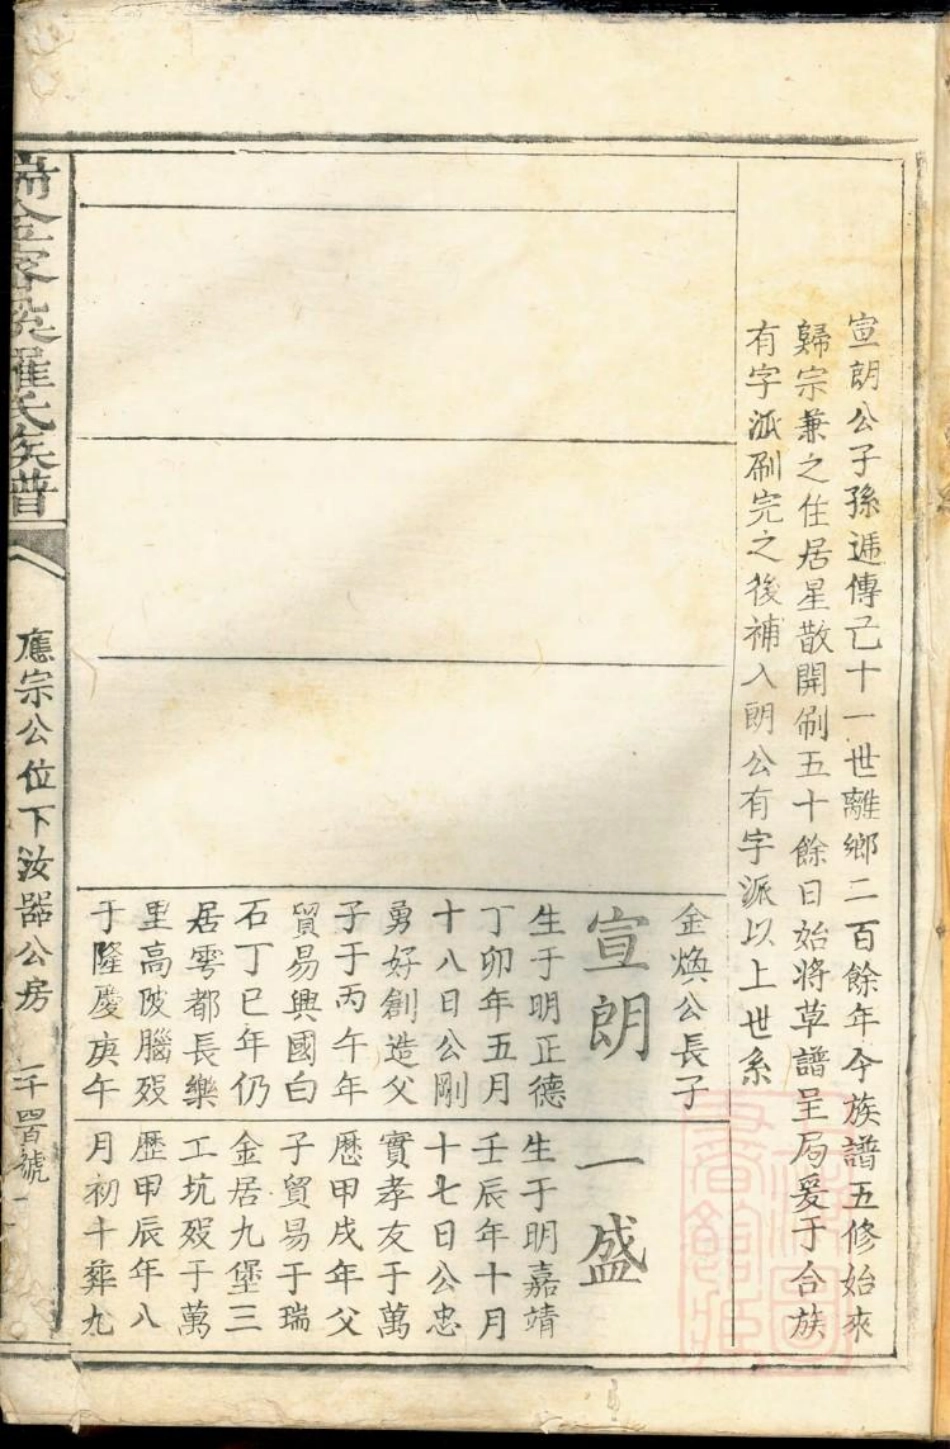 宣朗公子孫遞傳已十一世離鄉二百餘年今族譜五修始來
歸宗兼之住居星散開刷五十餘日始將草譜呈局爰于合族
有字派刷完之後補入朗公有字派以上世系
金煥公長子
宣朗
生于明正德
丁卯年五月
十八日公剛
勇好創造父
子于丙午年
貿易興國白
石丁巳年仍
居雩都長樂
里高陂腦歿
于隆慶庚午
一盛
生于明嘉靖
壬辰年十月
十七日公忠
實孝友于萬
厯甲戌年父
子貿易于瑞
金居九堡三
工坑歿于萬
歷甲辰年八
月初十葬九
金客羅氏族普
應宗公位下汝器公房